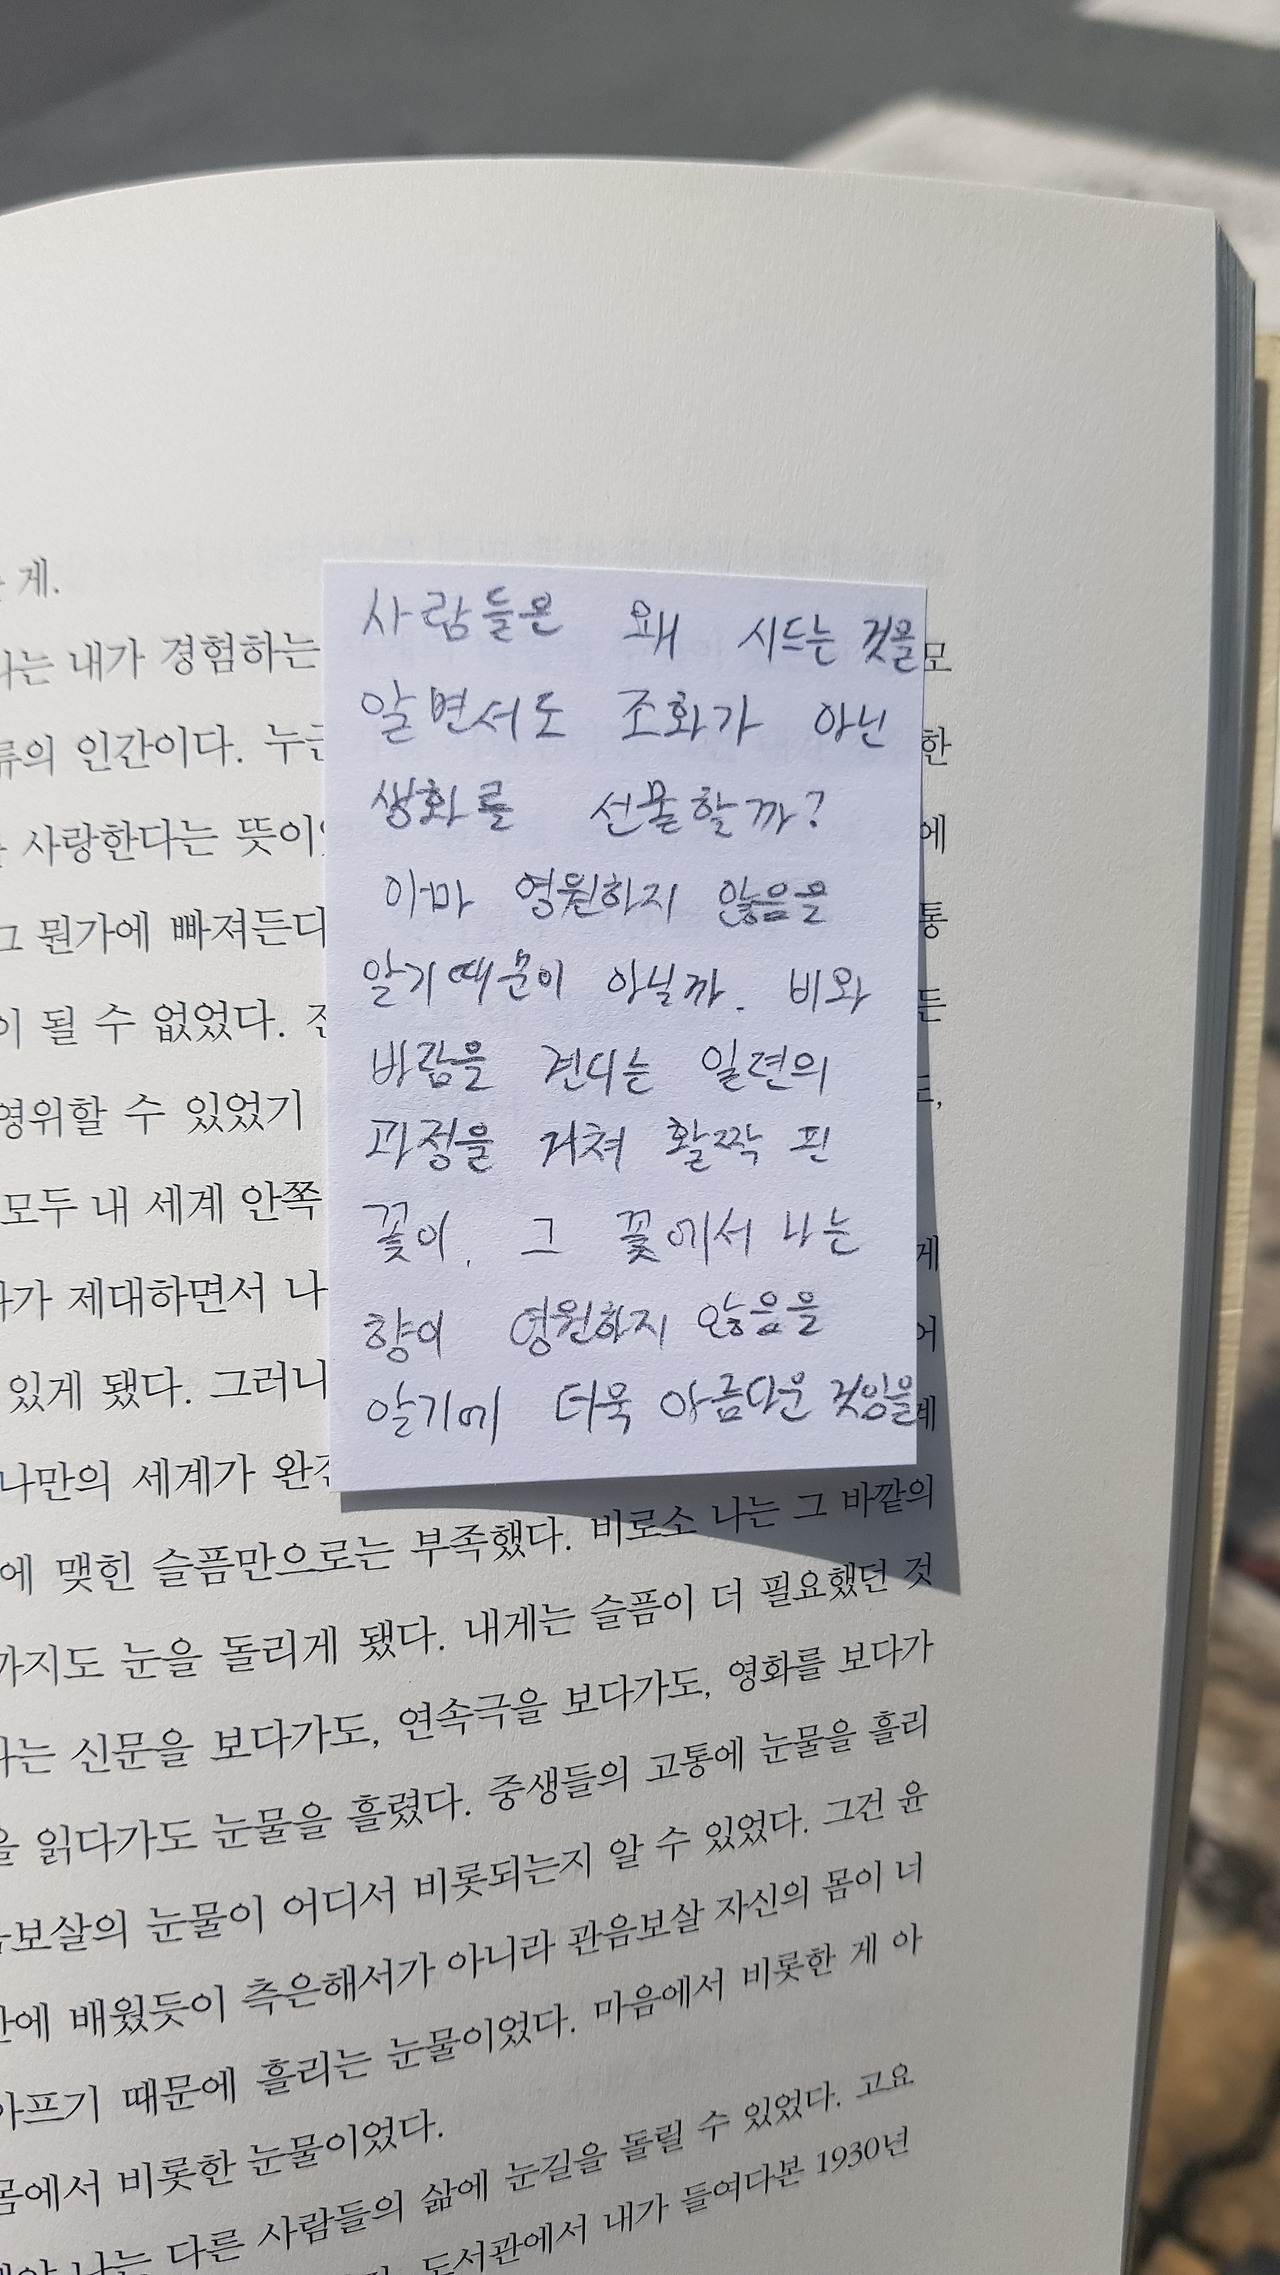 게.
는 내가 경험하는
모
류의 인간이다. 누
한
사랑한다는 뜻이
에
그 뭔가에 빠져든다
통
이 될 수 없었다.
든
영위할 수 있었기
모두 내 세계 안쪽
가 제대하면서 나
게
있게 됐다. 그러니
어
나만의 세계가 완
계
사람들은 왜 시드는 것을
알면서도 조화가 아닌
생화를 선물할까?
아마 영원하지 않음을
알기때문이 아닐까. 비와
바람을 견디는 일련의
과정을 거쳐 활짝 핀
꽃이, 그 꽃에서 나는
향이 영원하지 않음을
알기에 더욱 아름다운 것임을
에 맺힌 슬픔만으로는 부족했다. 비로소 나는 그 바깥의
까지도 눈을 돌리게 됐다. 내게는 슬픔이 더 필요했던 것
나는 신문을 보다가도, 연속극을 보다가도, 영화를 보다가
을 읽다가도 눈물을 흘렸다. 중생들의 고통에 눈물을 흘리
음보살의 눈물이 어디서 비롯되는지 알 수 있었다. 그건 윤
에 배웠듯이 측은해서가 아니라 관음보살 자신의 몸이 너
아프기 때문에 흘리는 눈물이었다. 마음에서 비롯한 게 아
몸에서 비롯한 눈물이었다.
나는 다른 사람들의 삶에 눈길을 돌릴 수 있었다. 고요
도서관에서 내가 들여다본 1930년